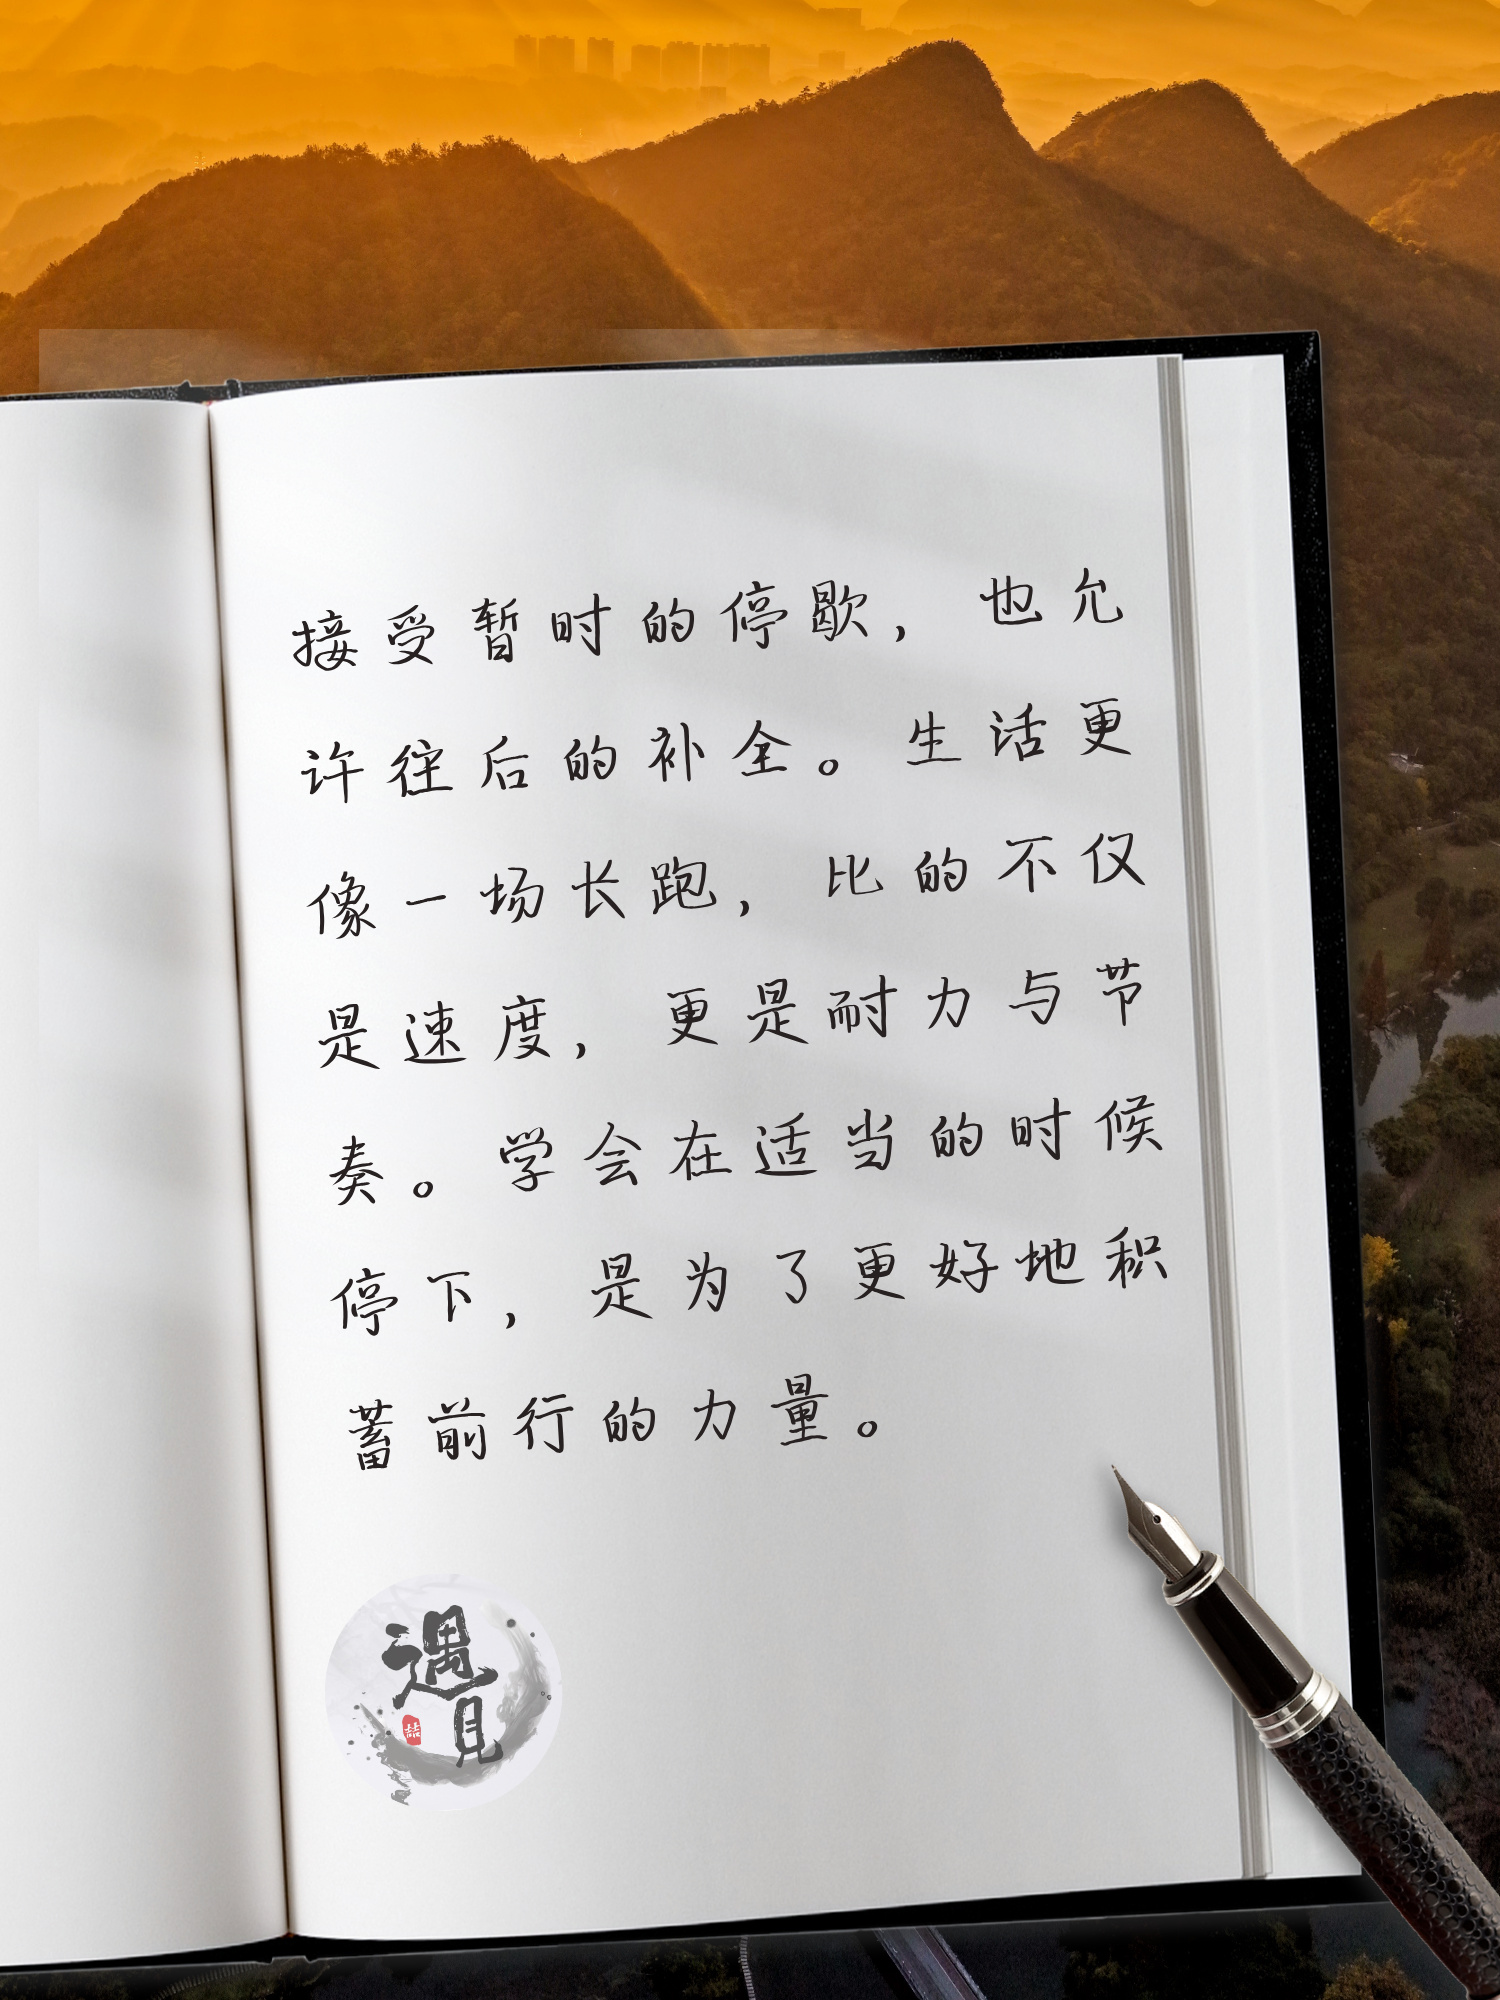 接受暂时的停歇，也允
许往后的补全。生活更
像一场长跑，比的不仅
是速度，更是耐力与节
奏。学会在适当的时候
停下，是为了更好地积
蓄前行的力量。
遇
見
喆